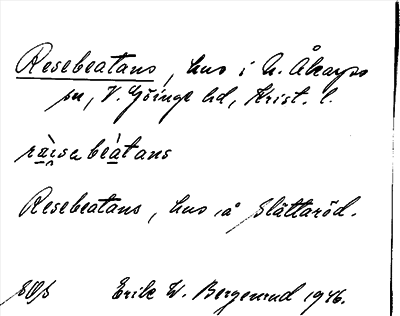 Resebeatans, hus i N. Åkarps
sn, V. Göinge hd, Krist. l.
ràisa beàtans
Resebeatans, hus å Slättaröd.
Erik W. Bergenrud 1946.